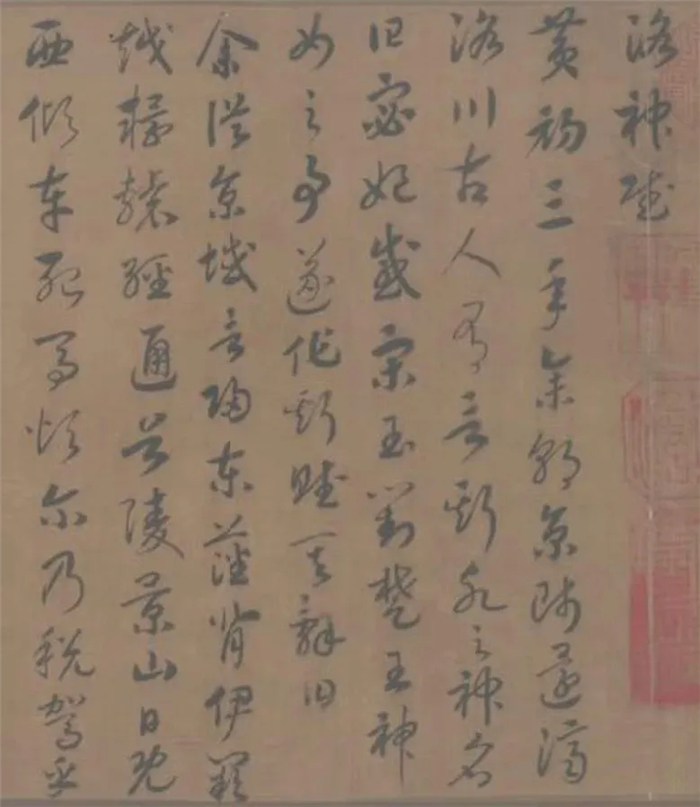 洛神賦
黄初三年余朝京師還濟
洛川古人有言斯水之神名
曰宓妃感宋玉對楚王神
女之事遂作斯賦其辭曰
余從京域言歸東藩背伊闕
越轘轅經通谷陵景山日既
西傾車殆馬煩尔乃税駕乎